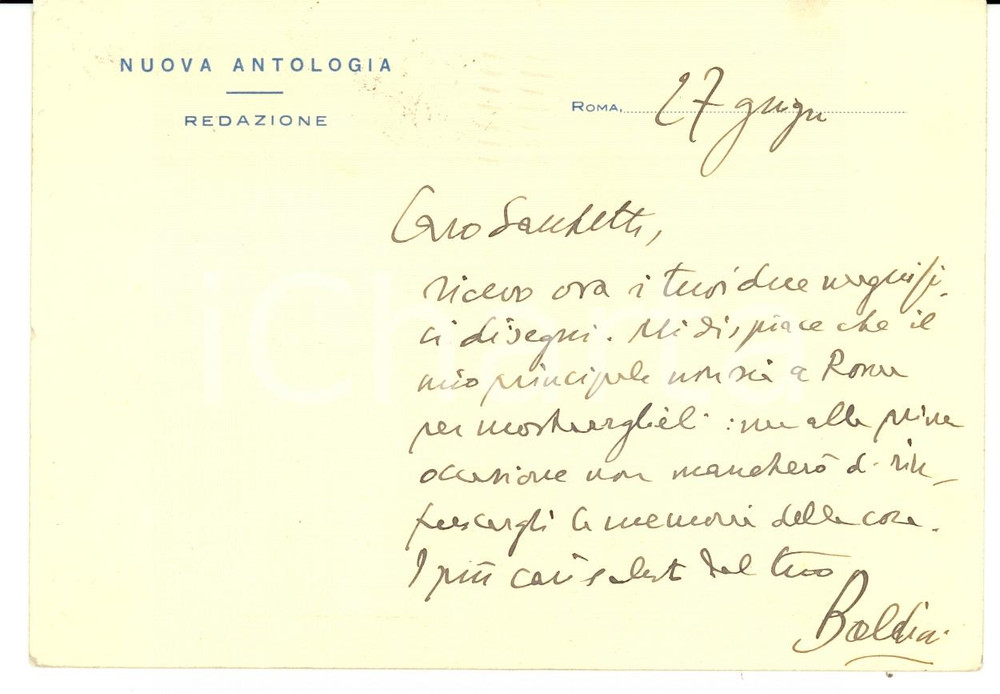 NUOVA ANTOLOGIA
REDAZIONE
ROMA, 27 giugno
Caro
ricevo ora i tuoi due magnifi-
ci disegni. Mi dispiace che il
mio principale non sia a Roma
per mostrarglieli: ma alla prima
occasione non mancherò di rin-
frescargli la memoria della cosa.
I più cari saluti dal tuo
Baldini
iCharta